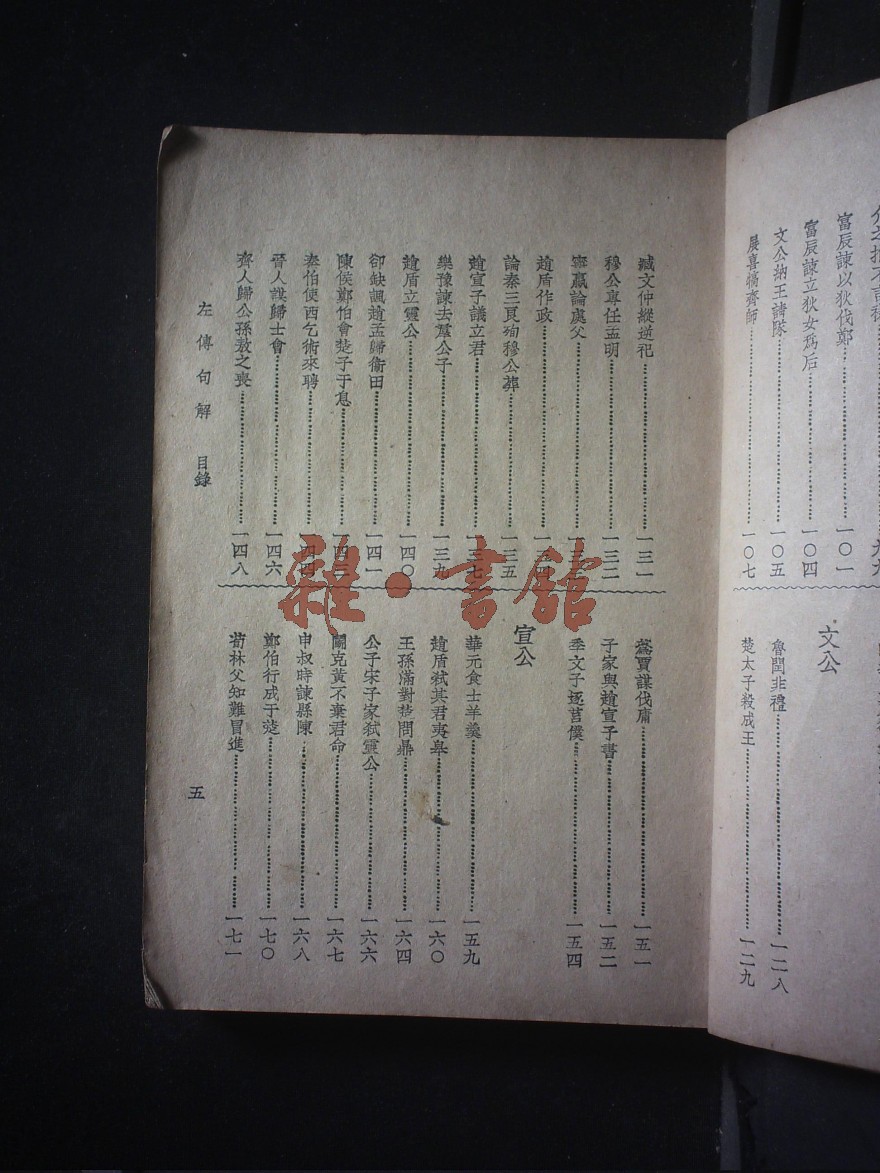 富辰諫以狄伐鄭 一〇一
富辰諫立狄女爲后 一〇四
文公納王請隊 一〇五
展喜犒齊師 一〇七
文公
魯閏非禮 一二八
楚太子殺成王 一二九
臧文仲縱逆祀 一三一
穆公專任孟明 一三二
甯嬴論處父
趙盾作政
論秦三良殉穆公葬 一三五
趙宣子議立君 一三七
樂豫諫去羣公子 一三九
趙盾立靈公 一四〇
郤缺諷趙孟歸衞田 一四一
陳侯鄭伯會楚子于息 一四三
秦伯使西乞術來聘 一四四
晉人謀歸士會 一四六
齊人歸公孫敖之喪 一四八
蔿賈謀伐庸 一五一
子家與趙宣子書 一五二
季文子逐莒僕 一五四
宣公
華元食士羊羹 一五九
趙盾弑其君夷皋 一六〇
王孫滿對楚問鼎 一六四
公子宋子家弑靈公 一六六
鬭克黃不棄君命 一六七
申叔時諫縣陳 一六八
鄭伯行成于楚 一七〇
荀林父知難冒進 一七一
左傳句解 目錄
五
雜·書館